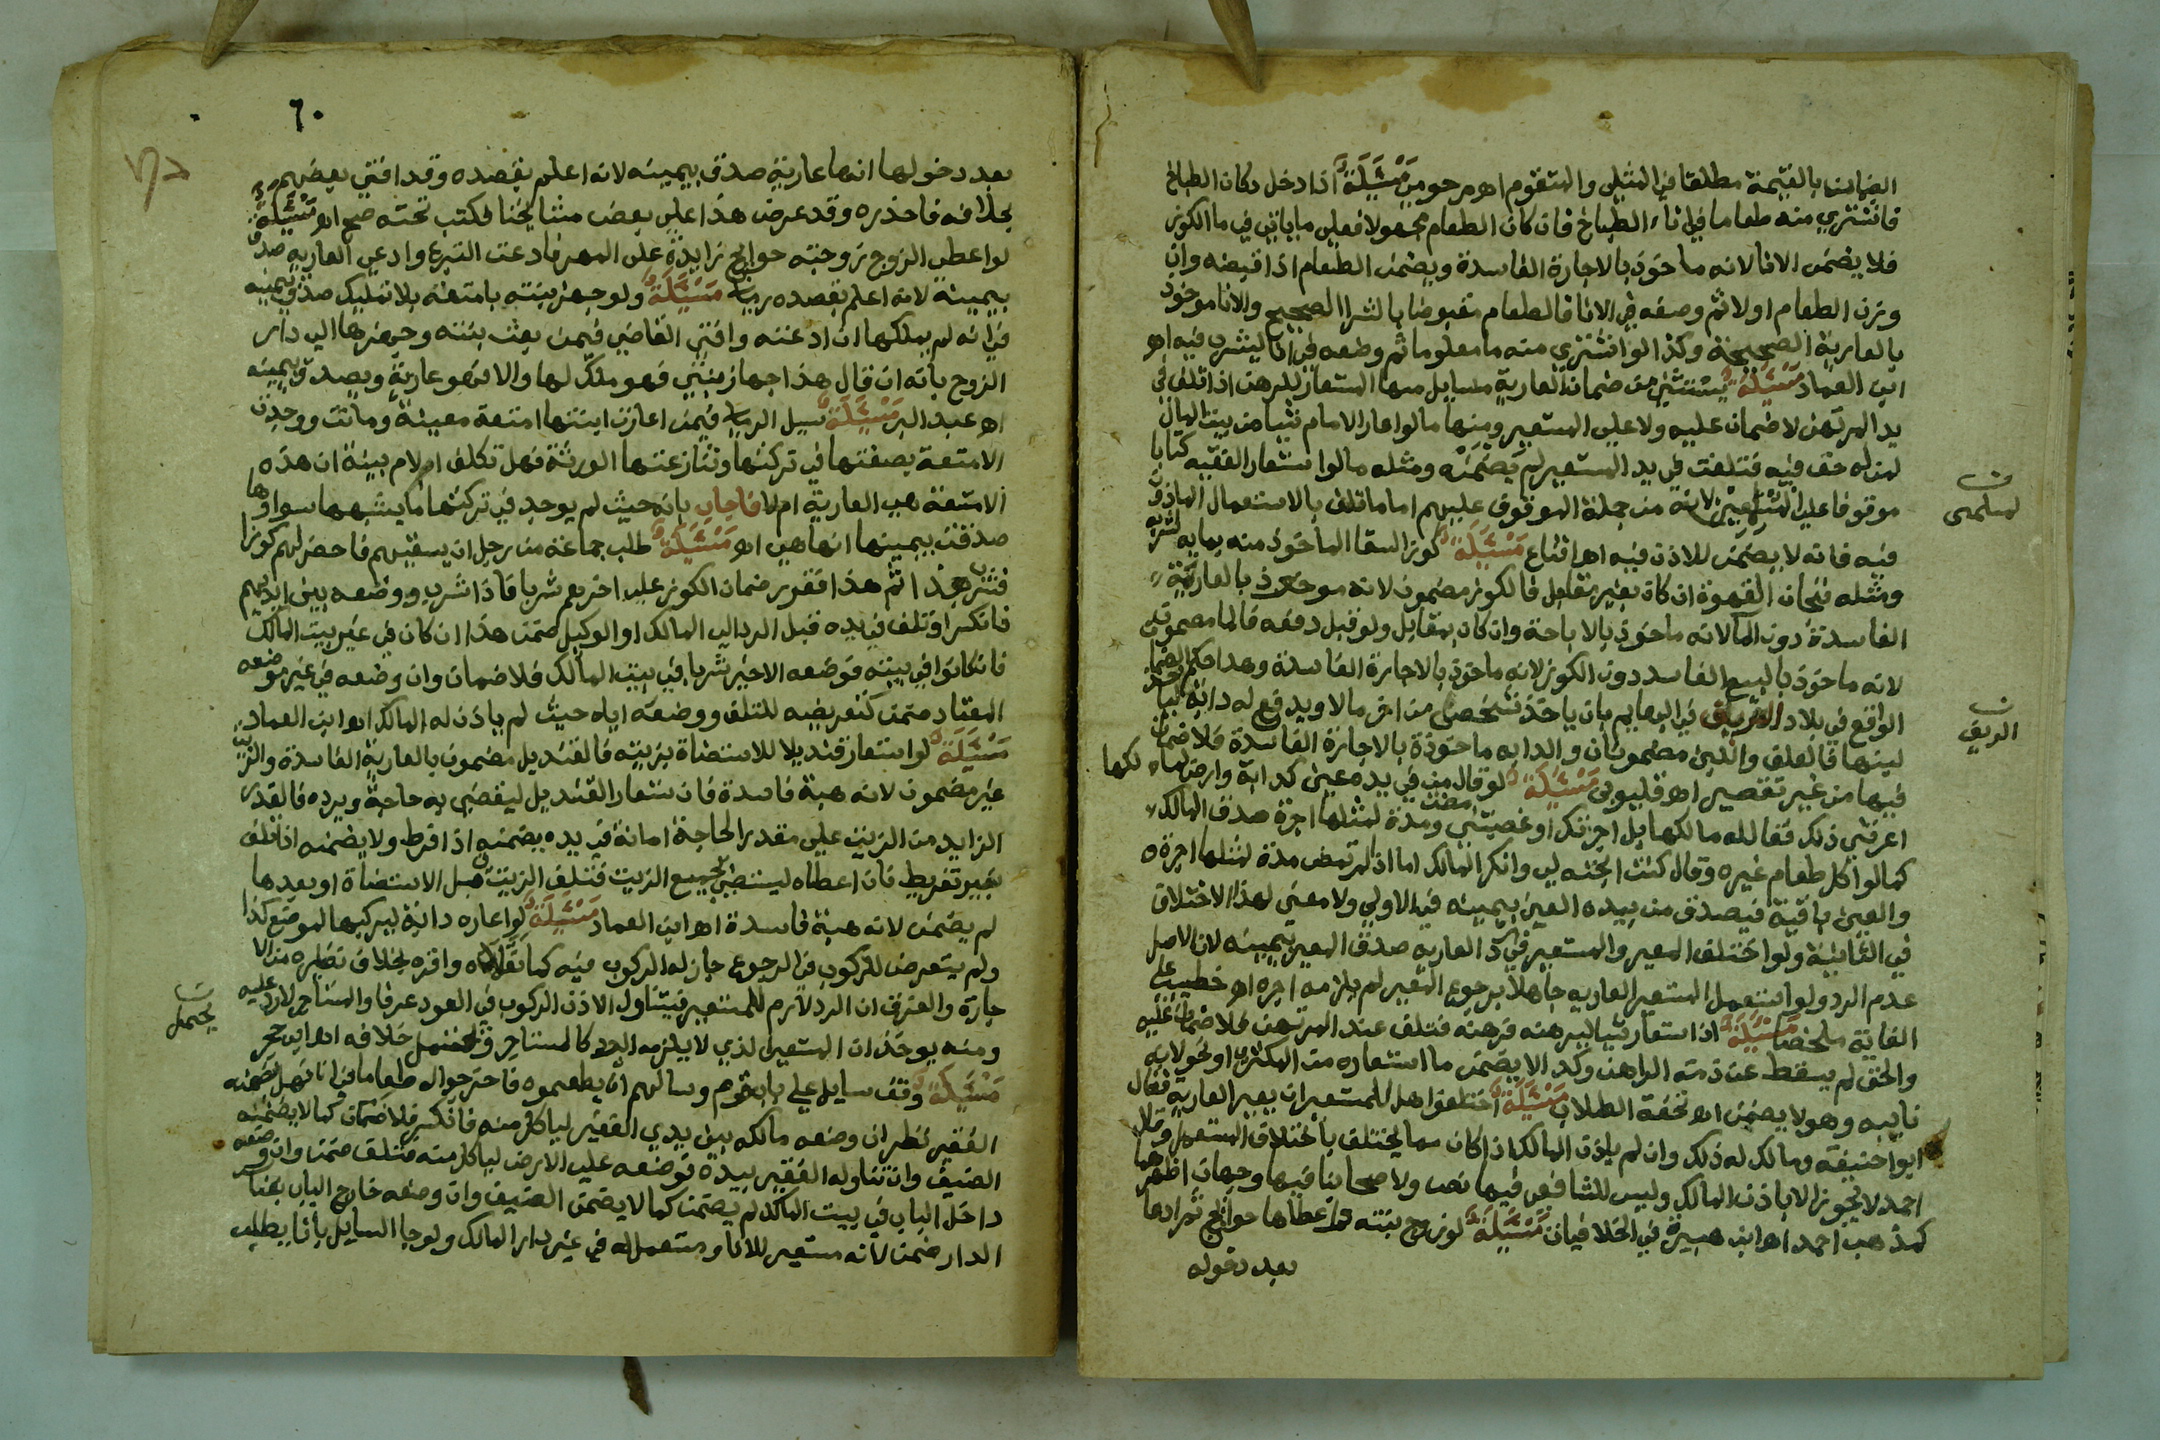 الضمان بالقيمة مطلقا في المثلي والمتقوم اهم ر مسئلة اذا دخل دكان الطباخ
فاشتري منه طعاما في اناء الطباخ فان كان الطعام مجهولا فعلي ما ياتي في ما الكوز
فلا يضمن الانا لانه ماخوذ بالاجارة الفاسدة ويضمن الطعام اذا قبضه وان
وزن الطعام اولا ثم وضعه في الانا فالطعام مقبوضا بالشرا الصحيح والانا موخوذ
بالعارية الصحيحة وكذا لو اشتري منه ما معلوما ثم وضعه في انا ليشرب فيه اهم
ابن العماد مسئلة يستثني من ضمان العارية مسايل منها المستعار للرهن اذا تلف في
يد المرتهن لا ضمان عليه ولا علي المستعير ومنها ما لو اعار الامام شيا من بيت المال
لمن له حق فيه فتلفت في يد المستعير لم يضمنه ومثله ما لو استعار الفقيه كتابا
موقوفا علي المسلمين لانه من جملة الموقوف عليهم اما ما تلف بالاستعمال الماذون
فيه فانه لا يضمن للاذن فيه اهم اقناع مسئلة كوز السقا الماخوذ منه بما به لشربه
ومثله فنجان القهوة ان كان بغير مقابل فالكوز مضمون لانه موخوذ بالعارية
الفاسدة دون الما لانه ماخوذ بالاباحة وان كان بمقابل ولو قبل دفعه فالما مضمون
لانه ماخوذ بالبيع الفاسد دون الكوز لانه ماخوذ بالاجارة الفاسدة وهذا حكم
الواقع في بلاد الارياف في البهايم بان ياخذ شخص من اخر مالا ويدفع له دابة
لبنها فالعلف واللبن مضمونان والدابه ماخوذة بالاجارة الفاسدة فلا ضمان
فيها من غير تقصير اهم قليوبي مسئلة لو قال من في يده عين كدابة وارض لمالكها
اعرتني ذلك فقال له مالكها بل اجرتك او غصبتني ومضت مدة لمثلها اجرة صدق المالك
كما لو اكل طعام غيره وقال كنت ابحته لي وانكر المالك اما اذا لم تمض مدة لمثلها اجرة
والعين باقية فيصدق من بيده العين بيمينه في الاولي ولا معني لهذا الاختلاف
في الثانية ولو اختلف المعير والمستعير في رد العاريه صدق المعير بيمينه لان الاصل
عدم الرد ولو استعمل المستعير العاريه جاهلا برجوع المعير لم يلزمه اجره اهم خطيب علي
الغاية ملخصا مسئلة اذا استعار شيا ليرهنه فرهنه فتلف عند المرتهن فلا ضمان عليه
والحق لم يسقط عن ذمة الراهن وكذا لا يضمن ما استعاره من المكتري او نحوه لانه
نايبه وهو لا يضمن اهم تحفة الطلاب مسئلة اختلفوا هل للمستعير ان يعير العارية فقال
ابو حنيفه ومالك له ذلك وان لم ياذن المالك اذا كان مما لا يختلف باختلاف المستعمل وقال
احمد لا يجوز الا باذن المالك وليس للشافعي فيها نص ولاصحابنا فيها وجهان اظهرهما
كمذهب احمد اهم ابن هبيرة في الخلافيات مسئلة لو زوج بنته واعطاها حوايج ثم ادعا
بعد دخوله
لمسلمى
الريف
٦٠
بعد دخولها انها عارية صدق بيمينه لانه اعلم بقصده وقد افتي بعضهم
بخلافه فاحذره وقد عرض هذا علي بعض مشايخنا فكتب تحته صح اهم مسئلة
لو اعطي الزوج زوجته حوايج زايدة علي المهر فادعت التبرع وادعي العارية صدق
بيمينه لانه اعلم بقصده مسئلة ولو جهز بنته بامتعة بلا تمليك صدق بيمينه
في انه لم يملكها ان ادعته وافتي القاضي فيمن بعث بنته وجهزها الي دار
الزوج بانه ان قال هذا جهاز بنتي فهو ملك لها والا فهو عارية ويصدق بيمينه
اهم عبد البر مسئلة سيل الرملي فيمن اعارت ابنتها امتعة معينة وماتت ووجدت
الامتعة بصفتها في تركتها وتنازعتها الورثة فهل تكلف الام بينة ان هذه
الامتعة هي العارية ام لا فاجاب بانه حيث لم يوجد في تركتها ما يشبهها سواها
صدقت بيمينها انها هي اهم مسئلة طلب جماعة من رجل ان يسقيهم فاحضر لهم كوزا
فشرب هذا ثم هذا فتقرر ضمان الكوز علي اخرهم شربا فاذا شرب ووضعه بين ايديهم
فانكسر او تلف في يده قبل الرد الي المالك او الوكيل ضمن هذا ان كان في غير بيت المالك
فان كانوا في بيته فوضعه الاخير شربا في بيت المالك فلا ضمان وان وضعه في غير موضعه
المعتاد ضمن كتعريضه للتلف ووضعه اياه حيث لم ياذن له المالك اهم ابن العماد
مسئلة لو استعار قنديلا للاستضاة بزيته فالقنديل مضمون بالعارية الفاسدة والزيت
غير مضمون لانه هبة فاسدة فان استعار القنديل ليقضي به حاجة ويرده فالقدر
الزايد من الزيت علي مقدر الحاجة امانة في يده يضمنه اذا فرط ولا يضمنه اذا تلف
بغير تفريط فان اعطاه ليستضي بجميع الزيت فتلف الزيت قبل الاستضاة او بعدها
لم يضمن لانه هبة فاسدة اهم ابن العماد مسئلة لو اعاره دابة ليركبها لموضع كذا
ولم يتعرض للركوب في الرجوع جاز له الركوب فيه كما نقلاه واقره بخلاف نظيره من الا
جارة والفرق ان الرد لازم للمستعير فيتناول الاذن الركوب في العود عرفا والمستاجر لا رد عليه
ومنه يوخذ ان المستعير الذي لا يلزمه الرد كالمستاجر ويحتمل خلافه اهم ابن حجر
مسئلة وقف سايل علي باب قوم وسالهم ان يطعموه فاخرجوا له طعاما في انا فهل يضمنه
الفقير نظر ان وضعه مالكه بين يدي الفقير لياكل منه فانكسر فلا ضمان كما لا يضمنه
الضيف وان تناوله الفقير بيده فوضعه علي الارض لياكل منه فتلف ضمن وان وضعه
داخل الباب في بيت المالك لم يضمن كما لا يضمن الضيف وان وضعه خارج الباب بفنا
الدار ضمن لانه مستعير للانا ومستعمل له في غير دار المالك ولو جا السايل بانا يطلب
يحتمل